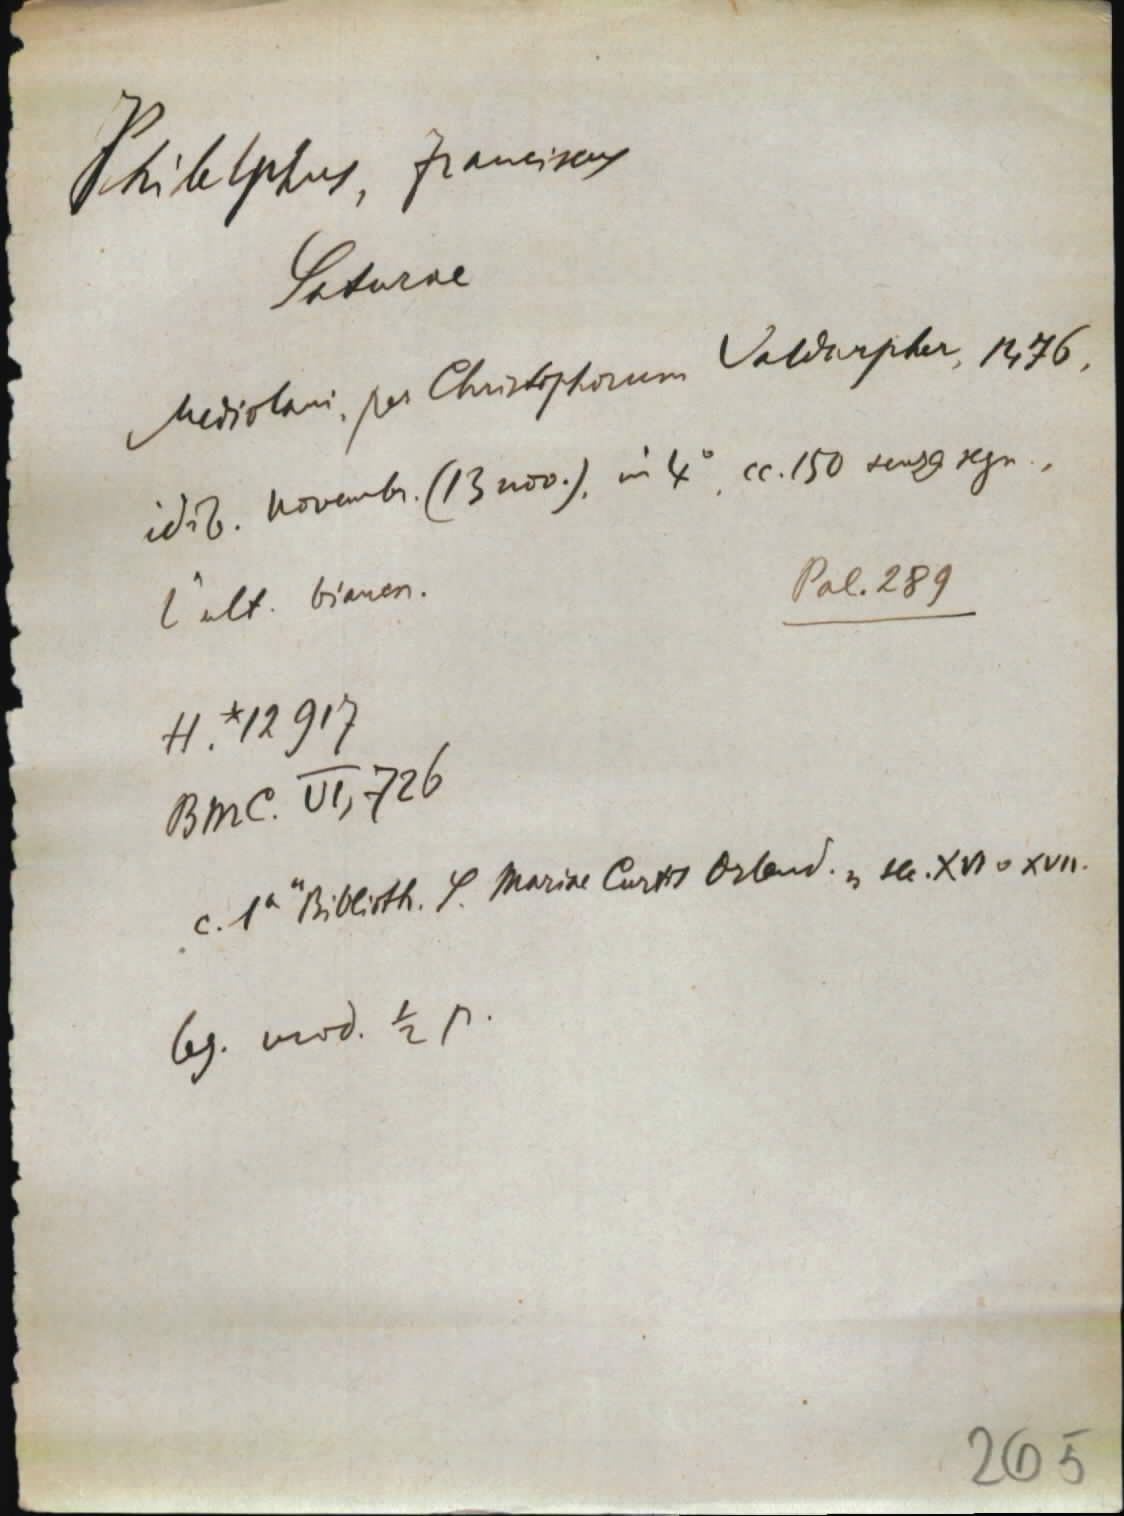 Philelphus, Franciscus
Saturae
Mediolani, per Christophorum Valdarpher, 1476,
idib. Novembr. (13 nov.), in 4°, cc. 150 senza segn.,
l'ult. bianca.
Pal. 289
H. *12917
BMC. VI, 726
c. 1ª "Biblioth. S. Mariae Curtis Orland." sec. XVI o XVII.
leg. mod. ½ p.
265